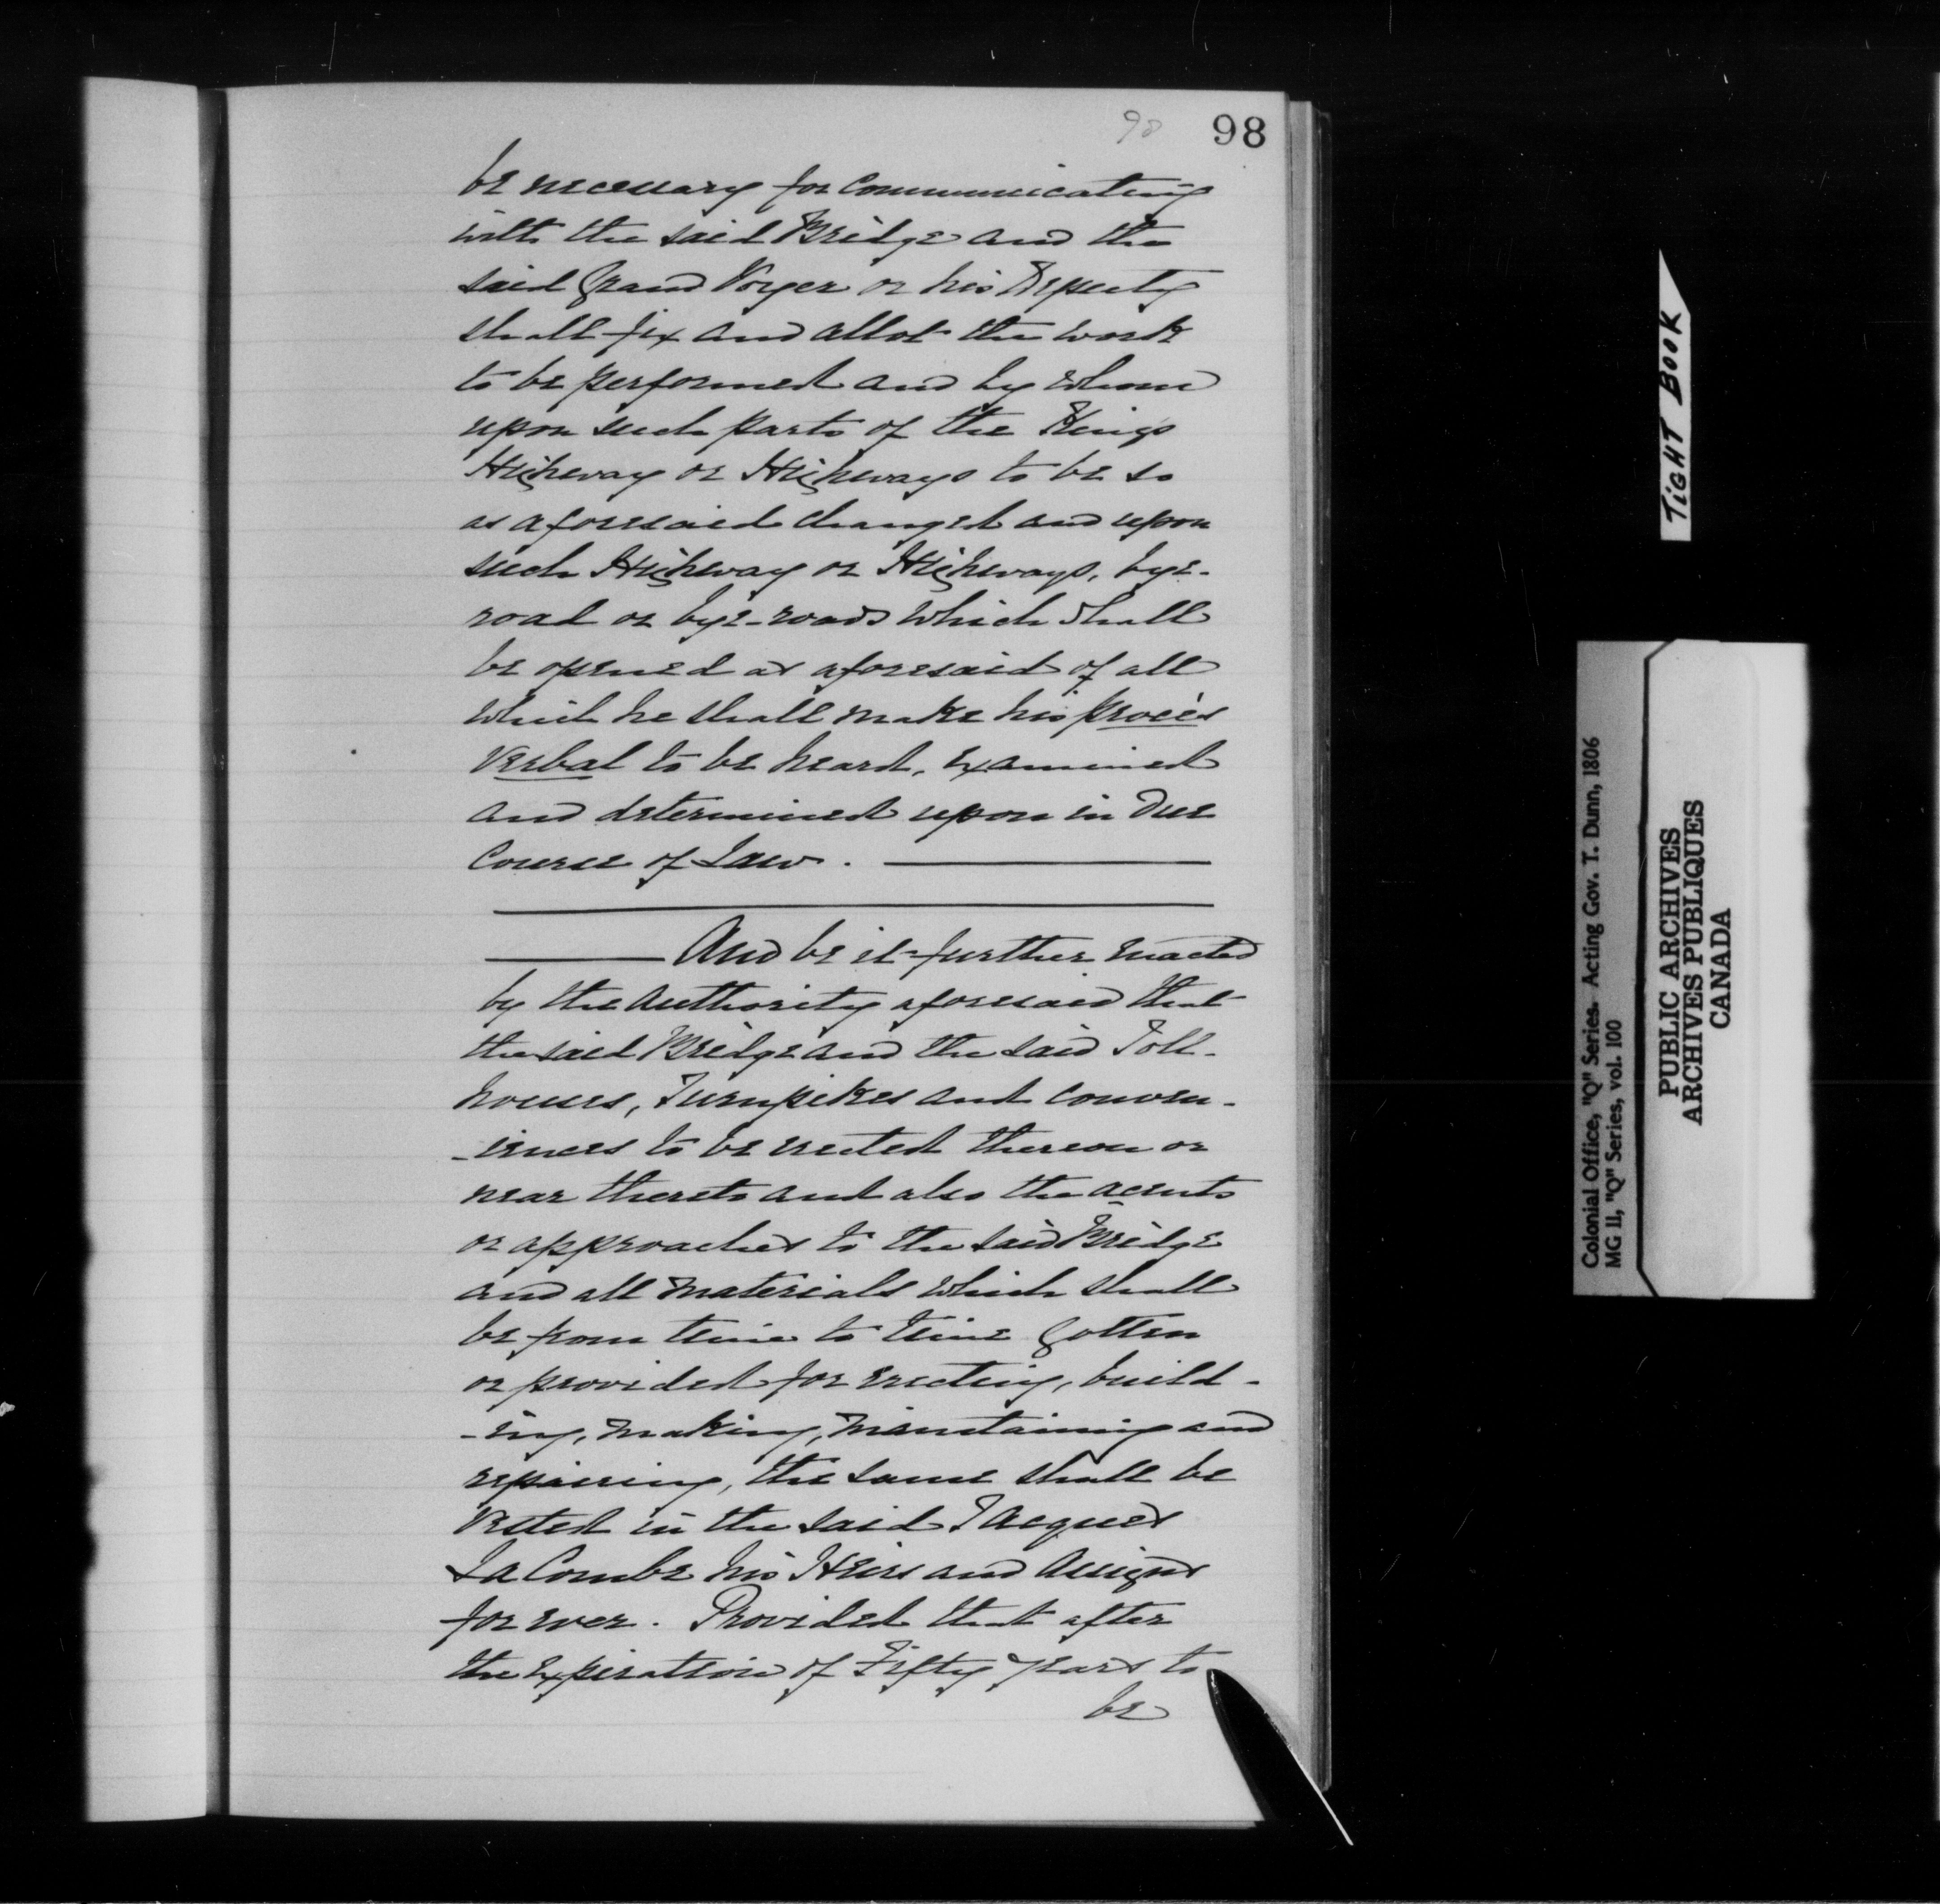 98 98
be necessary for communicating
with the said Bridge and the
said Grand Voyer or his Deputy
shall fix and allot the work
to be performed and by whom
upon such parts of the Kings
Highway or Highways to be so
as aforesaid changed and upon
such Highway or Highways, bye-
road or bye-roads which shall
be opened as aforesaid of all
which he shall make his procès
Verbal to be heard, examined
and determined upon in due
Course of Law.
And be it further enacted
by the Authority aforesaid that
the said Bridge and the said Toll-
houses, Turnpikes and conven-
-iences to be erected thereon or
near thereto and also the acents
or approaches to the said Bridge
and all materials which shall
be from time to time gotten
or provided for erecting, build-
-ing, making, maintaining and
repairing, the same shall be
Vested in the said Jacques
La Combe his Heirs and Assigns
for ever. Provided that after
the expiration of Fifty years to
be
TIGHT BOOK
Colonial Office, "Q" Series. Acting Gov. T. Dunn, 1806
MG 11, "Q" Series, vol. 100
PUBLIC ARCHIVES
ARCHIVES PUBLIQUES
CANADA